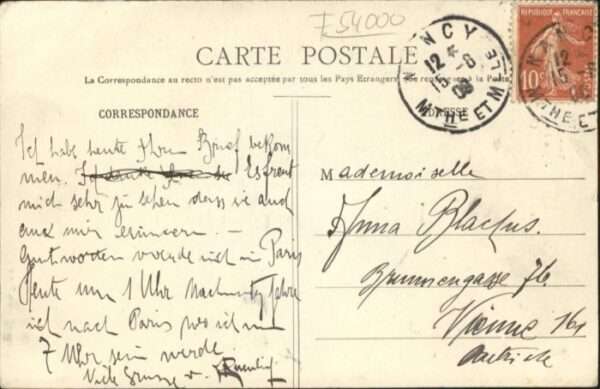 F 54000
CARTE POSTALE
La Correspondance au recto n'est pas acceptée par tous les Pays Etrangers. (Se renseigner à la Poste
CORRESPONDANCE
ADRESSE
NANCY
12 *
15 - 6
08
MTHE ET MLLE
REPUBLIQUE FRANÇAISE
10c
Ich habe heute Ihren Brief bekom
men. Es freut
mich sehr zu sehen dass sie auch
an mir erinnern. —
Antworten werde ich in Paris
Heute um 1 Uhr Nachmittag fahre
ich nach Paris wo ich um
7 Uhr sein werde.
Viele Grüsse v.
Mademoiselle
Anna
Brunnengasse 76
Vienne 16
Autriche